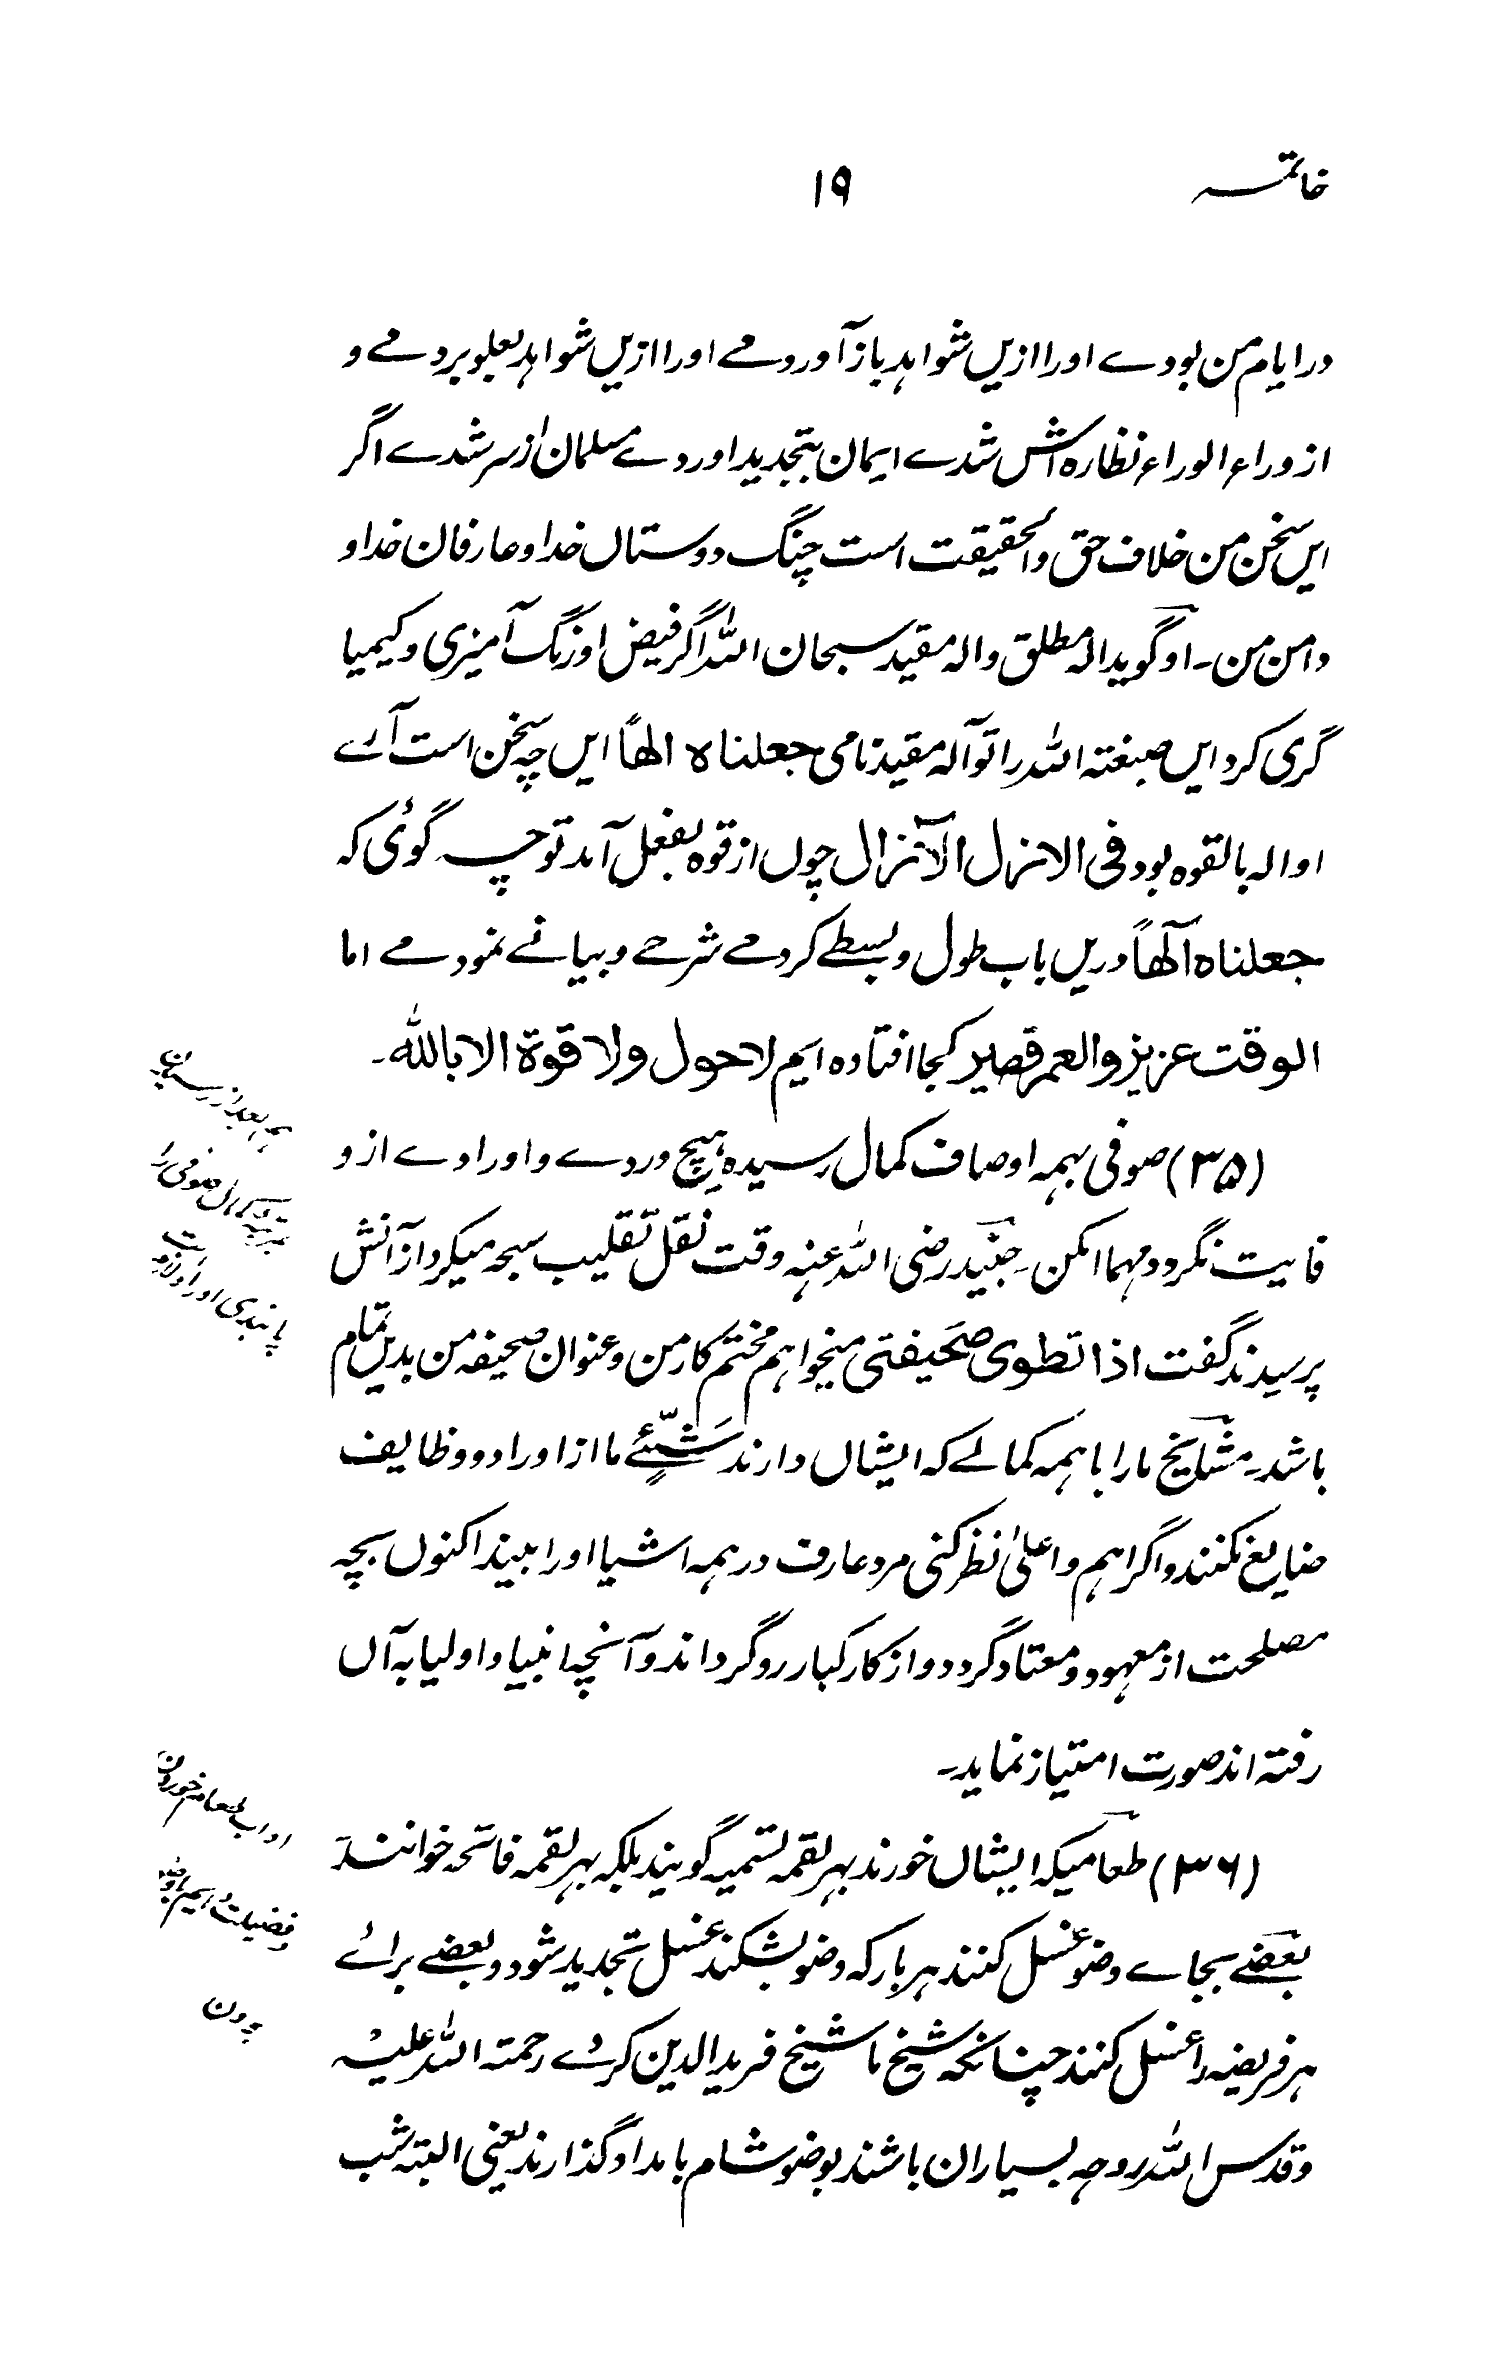 خاتمہ
۱۹
در ایام من بودے اورا ازیں شواہد باز آوردمے اورا ازیں شواہد بعلو بردمے و
از وراء الوراء نظارہ اش شدے ایمان بتجدید اوردے مسلمان از سر شدے اگر
ایں سخن من خلاف حق والحقیقت است چنگ دوستاں خدا و عارفان خدا و
دامن من۔ او گوید الٰہ مطلق والہ مقید سبحان اللہ اگر فیض او رنگ آمیزی و کیمیا
گری کرد ایں صبغتہ اللہ را تو آلہ مقید نامی جعلناہ الھاً ایں چہ سخن است آرے
او الہ بالقوہ بود فی الازل الآزال چوں از قوہ بفعل آمد تو چہ گوئی کہ
جعلناہ آلھاً دریں باب طول و بسطے کردمے شرحے و بیانے نمودمے اما
الوقت عزیز والعمر قصیر کجا افتادہ ایم لاحول ولا قوة الا باللہ۔
(۳۵) صوفی بہمہ اوصاف کمال رسیدہ ہیچ وردے و اورادے ازو
فایت نگردد مہما امکن۔ جنید رضی اللہ عنہ وقت نقل تقلیب سبحہ میکرد ازآنش
پرسیدند گفت اذا تطوی صحیفتی میخواہم مختم کار من و عنوان صحیفہ من بدیں تمام
باشد۔ مشایخ ما را با ہمہ کمالے کہ ایشاں دارند شیئے ما از اوراد و وظایف
ضایع نکنند و اگر اہم و اعلیٰ نظر کنی مرد عارف در ہمہ اشیا اورا بیند اکنوں بچہ
مصلحت از معہود و معتاد گردد و از کار کبار رو گرداند و آنچہ انبیا و اولیا بہ آں
رفتہ اند صورت امتیاز نماید۔
(۳۶) طعامیکہ ایشاں خورند بہر لقمہ تسمیہ گویند بلکہ بہر لقمہ فاتحہ خوانند
بعضے بجاے وضو غسل کنند ہر بار کہ وضو بشکند غسل تجدید شود و بعضے برائے
ہر فریضہ را غسل کنند چنانکہ شیخ ما شیخ فرید الدین کرے رحمتہ اللہ علیہ
و قدس اللہ روحہ بسیاران باشند بوضو شام بامداد گذارند یعنی البتہ شب
ہم بعد از رسیدن
بمرتبہ کمال صوفی را
پابندی اوراد
اداب طعام خوردن
و فضیلت دایم باوضو
بودن